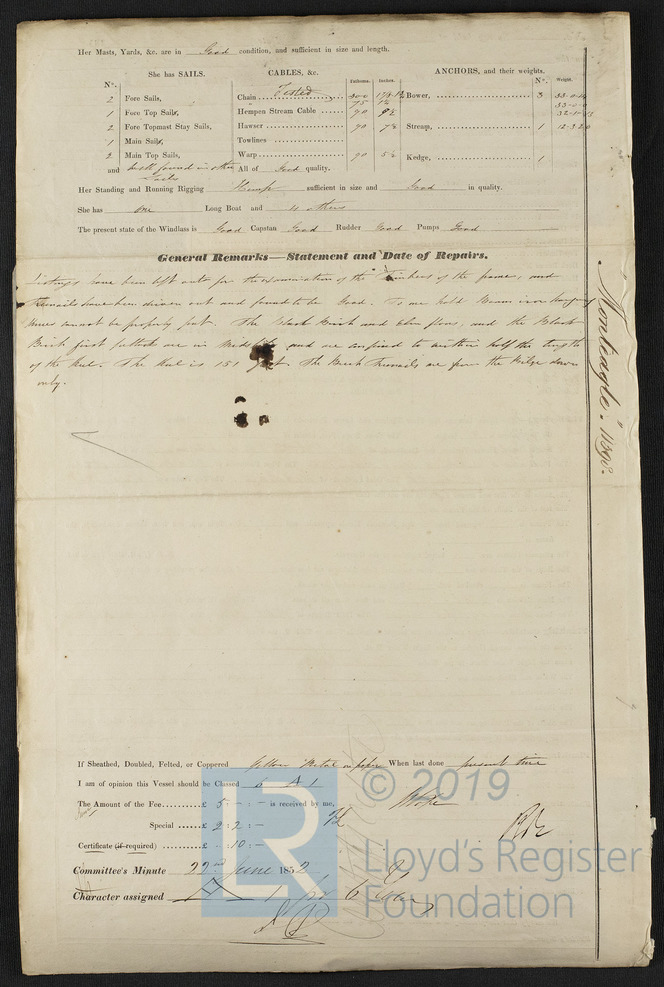 Her Masts, Yards, &c. are in Good condition, and sufficient in size and length.
She has SAILS. CABLES, &c. Fathoms. Inches. ANCHORS, and their weights. Nº. Weight.
Nº.
2 Fore Sails, Chain Tested 300 Bower, 3
75 33-0-0
1 Fore Top Sails, Hempen Stream Cable 90
2 Fore Topmast Stay Sails, Hawser 90 7½ Stream, 1 12-3-20
1 Main Sails, Towlines
2 Main Top Sails, Warp 90 5½ Kedge, 1
and well found in other Sails All of Good quality.
Her Standing and Running Rigging Hemp sufficient in size and Good in quality.
She has one Long Boat and 4 others
The present state of the Windlass is Good Capstan Good Rudder Good Pumps Good
General Remarks—Statement and Date of Repairs.
Listings have been left out for the examination of the Timbers of the frame, and
Treenails have been driven out and found to be Good. Hold Beam iron hanging
Knees cannot be properly put. The Black Birch and Elm floors, and the Black
Birch first futtocks are in Midships and are confined to within half the length
of the Keel. The Keel is 151 feet. The Treenails are from the Bilge down
only.
"Monteagle." 11398.
If Sheathed, Doubled, Felted, or Coppered Yellow Metal on paper When last done present time
I am of opinion this Vessel should be Classed 6 A 1
The Amount of the Fee £ 5 : - : - is received by me,
Special £ 2 : 2 : -
Certificate (if required) £ - : 10 : -
Committee's Minute 22nd June 1852
Character assigned A 1 for 6 Years
© 2019
LR
Lloyd's Register
Foundation